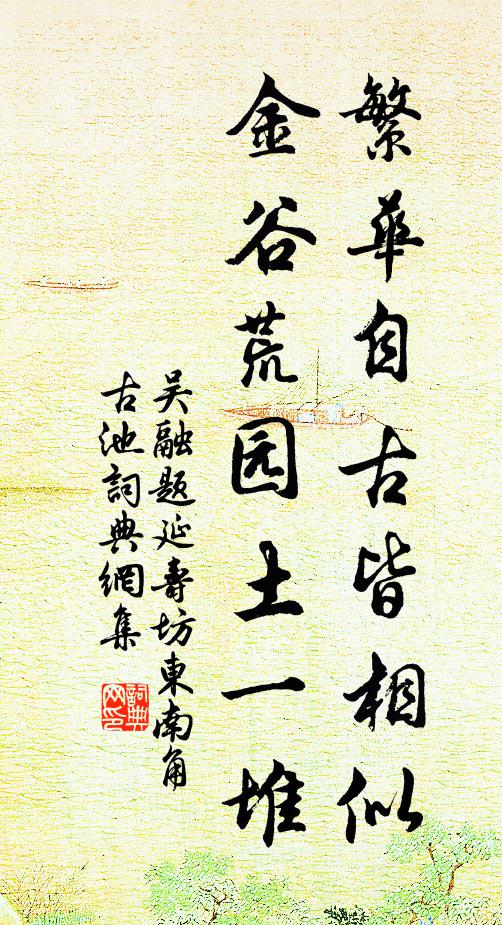 繁華自古皆相似
金谷荒园土一堆
吴融題延壽坊東南角
古池詞典網集
詞典网印